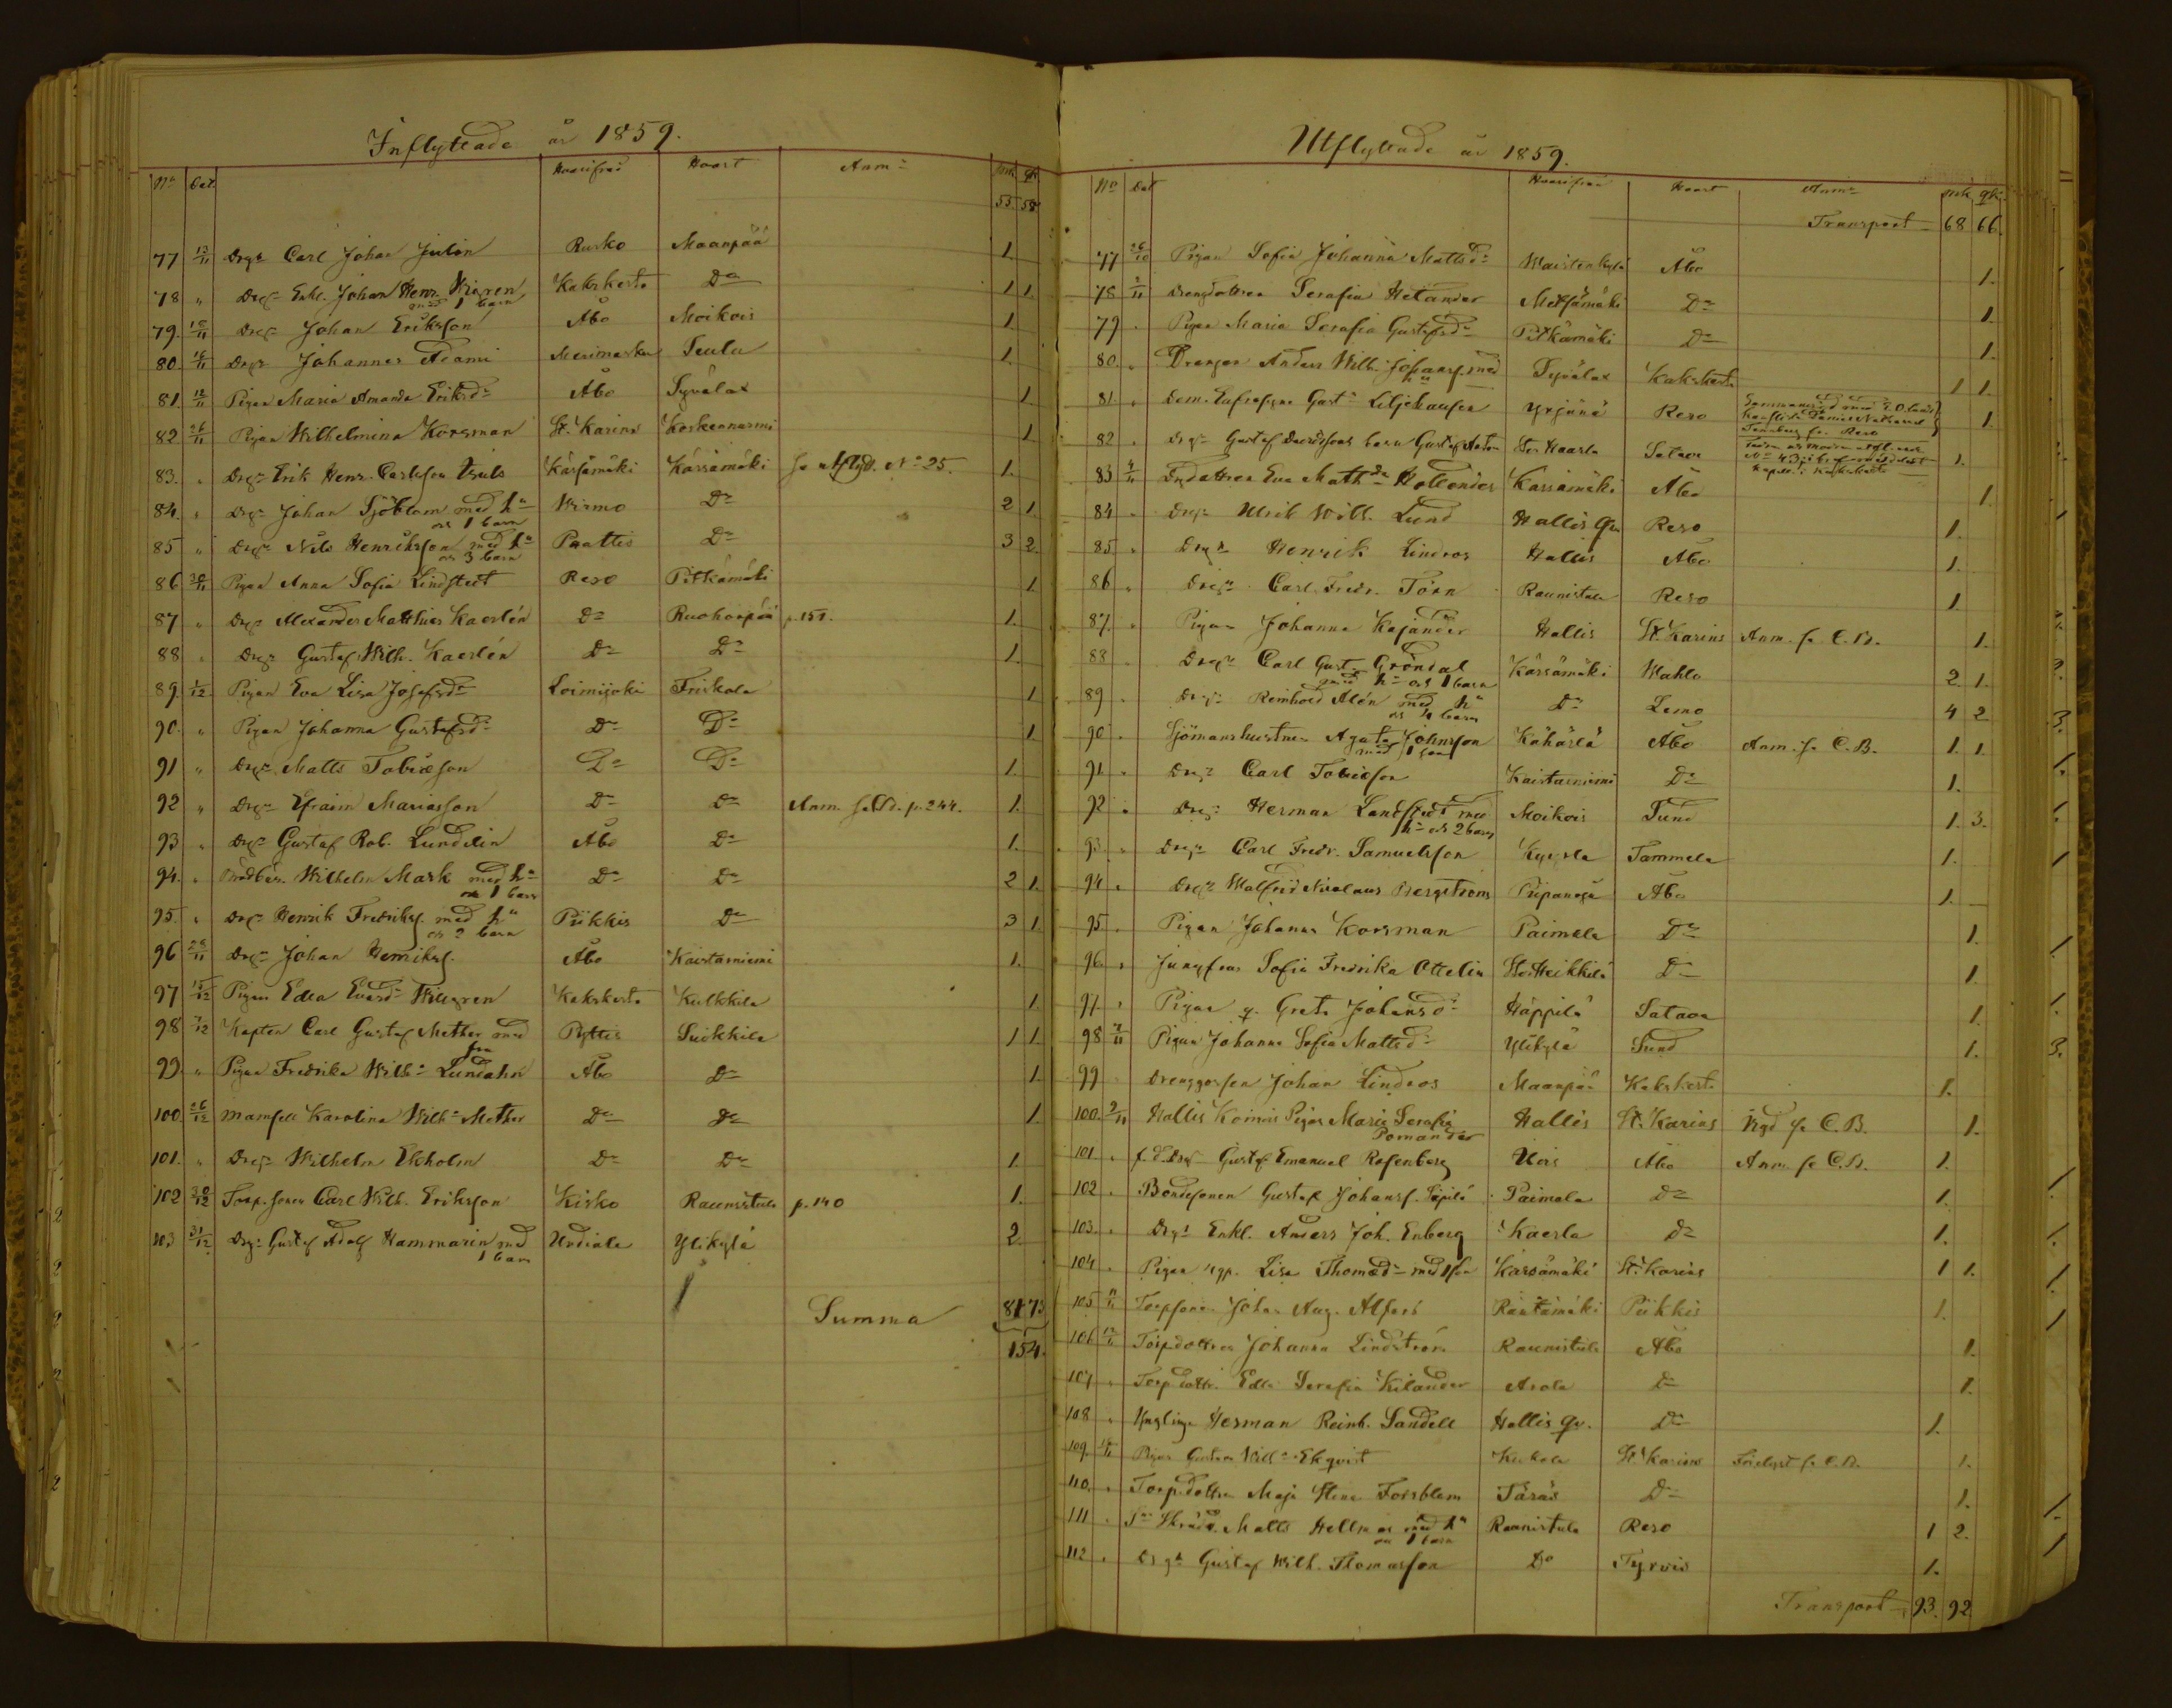 Inflyttade år 1859.
No Dat. Hvarifrån Hvart Anm. mk qk
53 58
77 13/11 Drgn Carl Johan Julin Rusko Maanpää 1.
78 " Drgn Enkl. Johan Henr. Wigren Kakskerta Do 1 1
och 1 barn
79. 15/11 Drgn Johan Eriksson Åbo Moikois 1
80. 16/11 Drgn Johannes Adami Merimasku Teulu 1.
81. 18/11 Pigan Maria Amanda Eriksdr Åbo Syvälax 1
82 26/11 Pigan Wilhelmina Korsman St. Karins Koskennurmi 1
83. " Drgn Erik Henr. Carlsson Kärsämäki Kärsämäki se utflytt. No 25. 1.
84. " Drgn Johan Sjöblom med hu Wirmo Do 2 1.
och 1 barn
85 " Drgn Nils Henriksson med hu Paattis Do 3 2.
och 3 barn
86 30/11 Pigan Anna Sofia Lindstedt Reso Pitkämäki 1.
87 " Drgn Alexander Matthias Kaerlén Do Ruohonpää p. 151. 1.
88 " Drgn Gustaf Wilh. Kaerlén Do Do 1.
89. 1/12 Pigan Eva Lisa Josefsdr Loimijoki Friskala 1
90. " Pigan Johanna Gustafsdr Do Do 1
91 " Drgn Matts Tobiasson Do Do 1.
92 " Drgn Efraim Mariasson Do Do Anm. se CB. p. 244. 1.
93 " Drgn Gustaf Rob. Lundelin Åbo Do 1.
94. " Wilhelm Mark med hu Do Do 2 1.
och 1 barn
95. " Drgn Henrik Fredriksf. med hu Piikkis Do 3 1
och 2 barn
96 28/11 Drgn Johan Henriksf. Åbo Kaistarniemi 1.
97 15/12 Pigan Edla Evasdr Willgren Kakskerta Kulkkila 1.
98 7/12 Kapten Carl Gustaf Mether med Pyttis Suikkila 1 1
fru
99. " Pigan Fredrika Wilha Lundahn Åbo Do 1.
100 16/12 Mamsell Karolina Wilha Mether Do Do 1.
101. " Drgn Wilhelm Ekholm Do Do 1.
102 30/12 Torp.sonen Carl Wilh. Eriksson Kisko Raunistula p. 140 1.
103 31/12 Drgn Gustaf Adolf Hammarin med Urdiala Ylikylä 2.
1 barn
Summa 81 73
154.
Utflyttade år 1859.
No Dat Hvarifrån Hvart Anm. mk qk.
Transport 68 66.
77 26/10 Pigan Sofia Johanna Mattsdr Waistenkylä Åbo 1.
78 2/11 Drengdottren Serafia Helander Metsämäki Do 1.
79 " Pigan Maria Serafia Gustafsdr Pitkämäki Do 1.
80. " Drengen Anders Wilh. Johansf. med Syvälax Kakskerta 1 1.
hu
81 " Dem. Gust. Liljehaufer Yrjänä Reso 1.
82 . Drgn Gustaf Davidssons barn Gustaf Anton Stor Haarla Satava 1.
83 4/11 Drgdottren Eva Mathda Hollender Kärsämäki Åbo 1
84 " Drgn Ulrik Wilh. Lund Hallis Reso 1.
85 " Drgn Henrik Lindroos Hallis Åbo 1.
86 " Drgn Carl Fredr. Törn Raunistula Reso 1
87. " Pigan Johanna Kajander Hallis St. Karins Anm. se C.B. 1.
88 . Drgn Carl Gust. Gröndal Kärsämäki Wahto 2. 1.
med hu och 1 barn
89 . Drgn Reinhold Alén med hu Do Lemo 4 2
och 4 barn
90 " Sjömanshustrun Agata Johnsson Kähärlä Åbo Anm. se C.B. 1. 1.
med 1 son
91 " Drgn Carl Tobiasson Kaistarniemi Do 1.
92 " Drgn Herman Landstedt med Moikois Sund 1. 3.
hu och 2 barn
93 " Drgn Carl Fredr. Samuelsson Tammela 1.
94 " Drgn Walfrid Nicolaus Bergström Pispanoja Åbo 1.
95 . Pigan Johanna Korsman Paimala Do 1.
96 " Jungfrun Sofia Fredrika Ottelin Stor Heikkilä Do 1.
97. " Pigan g. Greta Johansdr Häppilä Satava 1.
98 7/11 Pigan Johanna Sofia Mattsdr Ylikylä Sund 1.
99 Drenggossen Johan Lindroos Maanpää Kakskerta 1.
100. 9/11 Hallis Pigan Maria Serafia Hallis St. Karins se C.B. 1.
Pomander
101 " f.d. Drgn Gustaf Emanuel Rosenberg Uois Åbo Anm. se C.B. 1.
102 " Bondesonen Gustaf Johansf. Paimala Do 1.
103. " Drgn Enkl. Anders Joh. Enberg Kaerla Do 1.
104 " Pigan Lisa Thomasdr med 1 son Kärsämäki St. Karins 1 1.
105 11/11 Torpsonen Johan Aug. Alfors Räntämäki Piikkis 1.
106 12/11 Torpdottren Johanna Lindström Raunistula Åbo 1.
107 " Torpdottr. Edla Serafia Kilander Arola Do 1.
108 " Ynglingen Herman Reinh. Sandell Hallis Do 1.
109. Pigan Gustava Wilha Ekqvist Kukola St. Karins se C.B. 1.
110. " Torpdottren Maja Stina Forsblom Saräs Do 1.
111 " Matts Hellman med hu Raunistula Reso 1 2.
och 1 barn
112 " Drgn Gustaf Wilh. Thomasson Do Tyrvis 1.
Transport 93. 92